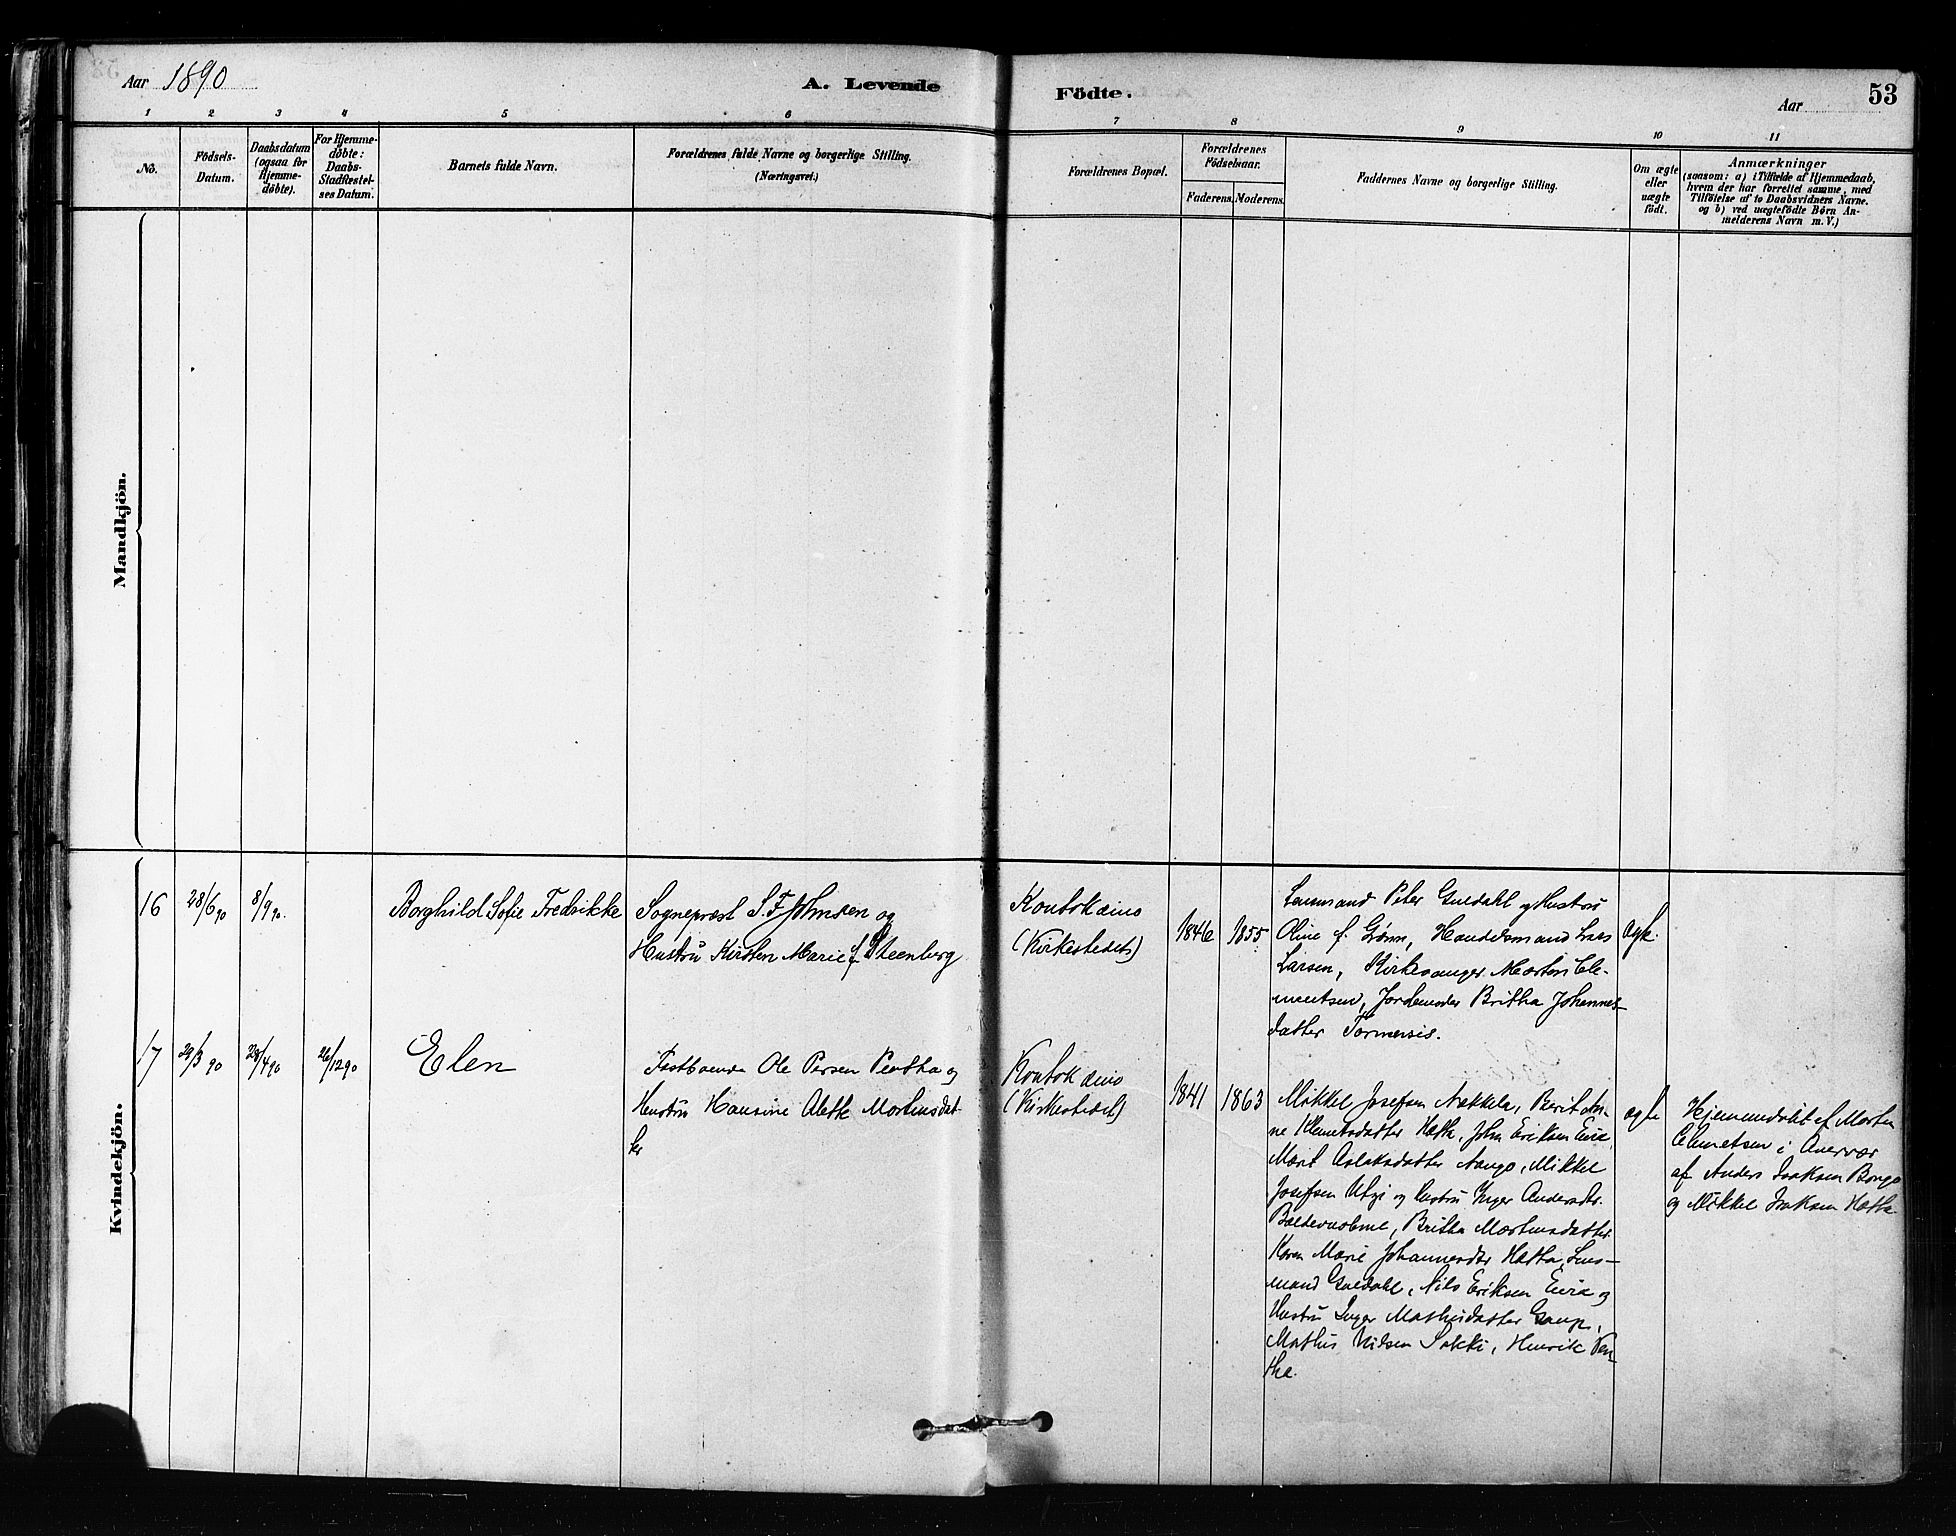 Aar 1890
A. Levende
Födte.
Aar
53
1 2 3 4 5 6 7 8 9 10 11
No.
Födsels-
Datum.
Daabsdatum
(ogsaa for
Hjemme-
døbte).
For Hjemme-
døbte:
Daabs-
Stadfæstel-
ses Datum.
Barnets fulde Navn.
Forældrenes fulde Navne og borgerlige Stilling.
(Næringsvei.)
Forældrenes Bopæl.
Forældrenes
Födselsaar.
Faderens. Moderens.
Faddernes Navne og borgerlige Stilling.
Om ægte
eller
uægte
født.
Anmærkninger
(saasom: a) i Tilfælde af Hjemmedaab,
hvem der har forrettet samme, med
Tilföielse af to Daabsvidners Navne.
og b) ved uægtefödte Børn An-
melderens Navn m. V.)
Mandkjön.
Kvindekjön.
16
28/6 90
8/9 90.
Borghild Sofie Fredrikke
Sogneprest S. F. Johnsen og
Hustru Kirsten Marie f. Steenberg
Koutokeino
(Kirkestedet)
1846
1855
Lensmand Peter Guldahl og Hustru
Oline f. Grønn, Handelsmand Lars
Larsen, Kirkesanger Morten Cle-
mentsen, Jordemoder Britha Johannes-
datter Tormensis.
ægte.
17
29/3 90
28/4 90
26/12 90
Elen
Fastboende Ole Persen Pentha og
Hustru Hansine Alette Mortensdat-
ter
Koutokeino
(Kirkestedet)
1841
1863
Mikkel Josefsen Nækkela, Berit An-
ne Klemetsdatter Hætta, John Eriksen Eira
Marit Aslaksdatter Nango, Mikkel
Josefsen Utsi og Hustru Inger Andersdtr.
Britha Mortensdatter.
Karen Marie Johannesdtr Hætta, Lens-
mand Guldahl, Nils Eriksen Eira og
Hustru Inger Mathisdatter Gaup,
Mathis Nilsen Sokki, Henrik Pen-
tha.
ægte
Hjemmedøbt af Morten
Clemetsen i
af Anders Isaksen Bongo
og Mikkel Isaksen Hætta